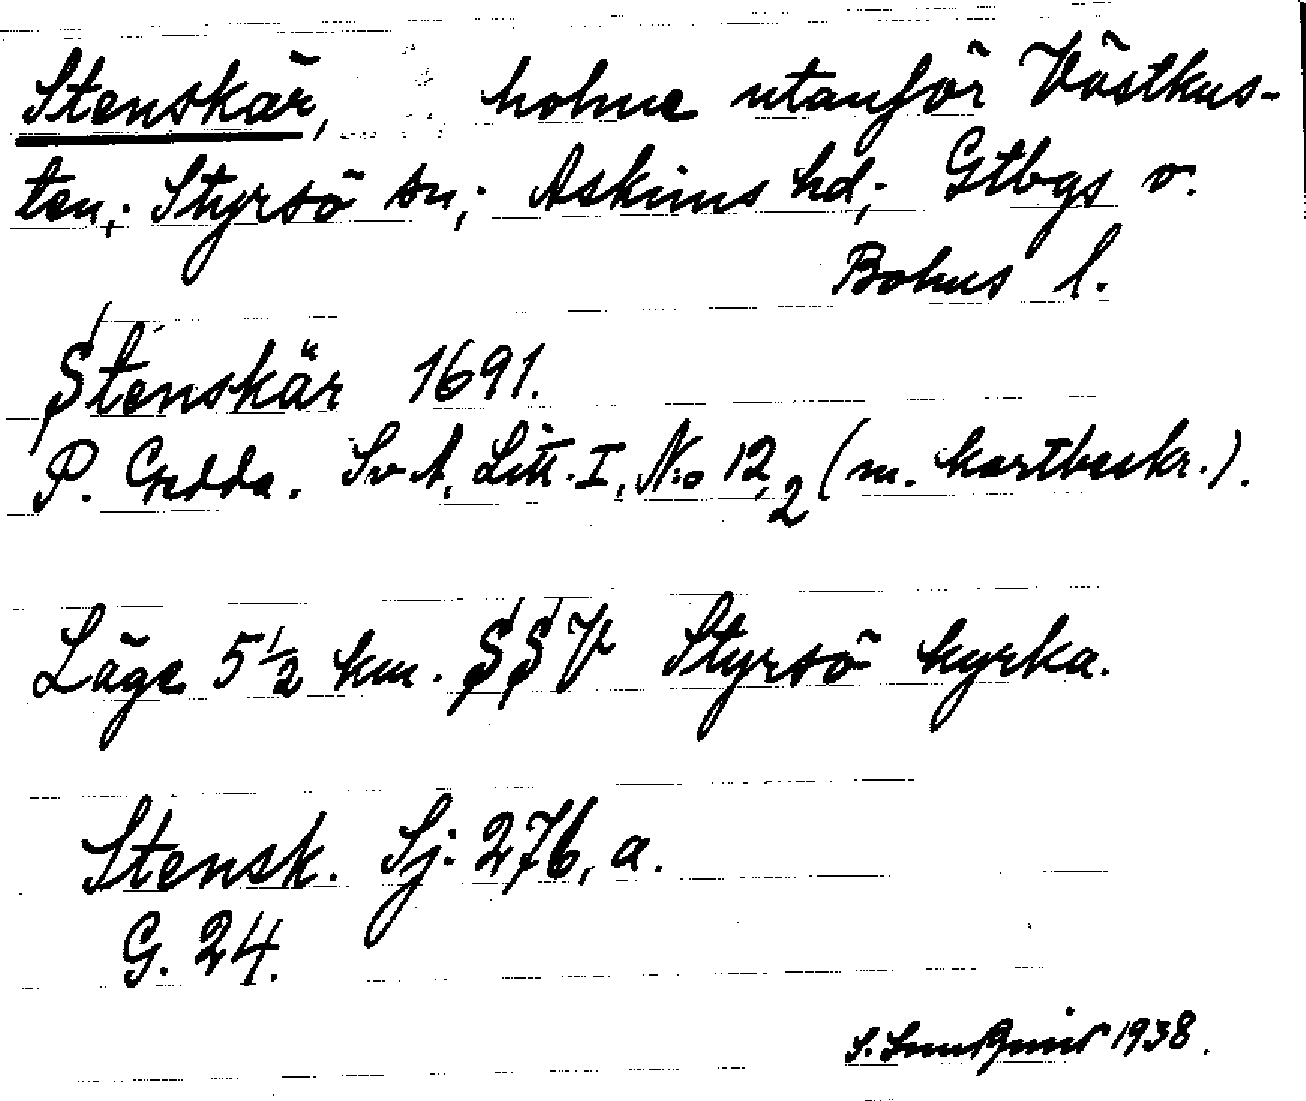 Stenskär, holme utanför Västkus-
ten; Styrsö sn; Askims hd; Gtbgs o.
Bohus l.
Stenskär 1691.
P. Gedda. Sv A, Litt. I, No 12,2 (m. kartbeskr.).
Läge 5 1/2 km. SSV Styrsö kyrka.
Stensk. Sj: 276, a.
G. 24.
S. 1938.